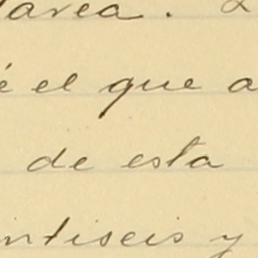 tarea. L
é el que a
de esta
ntiseis y